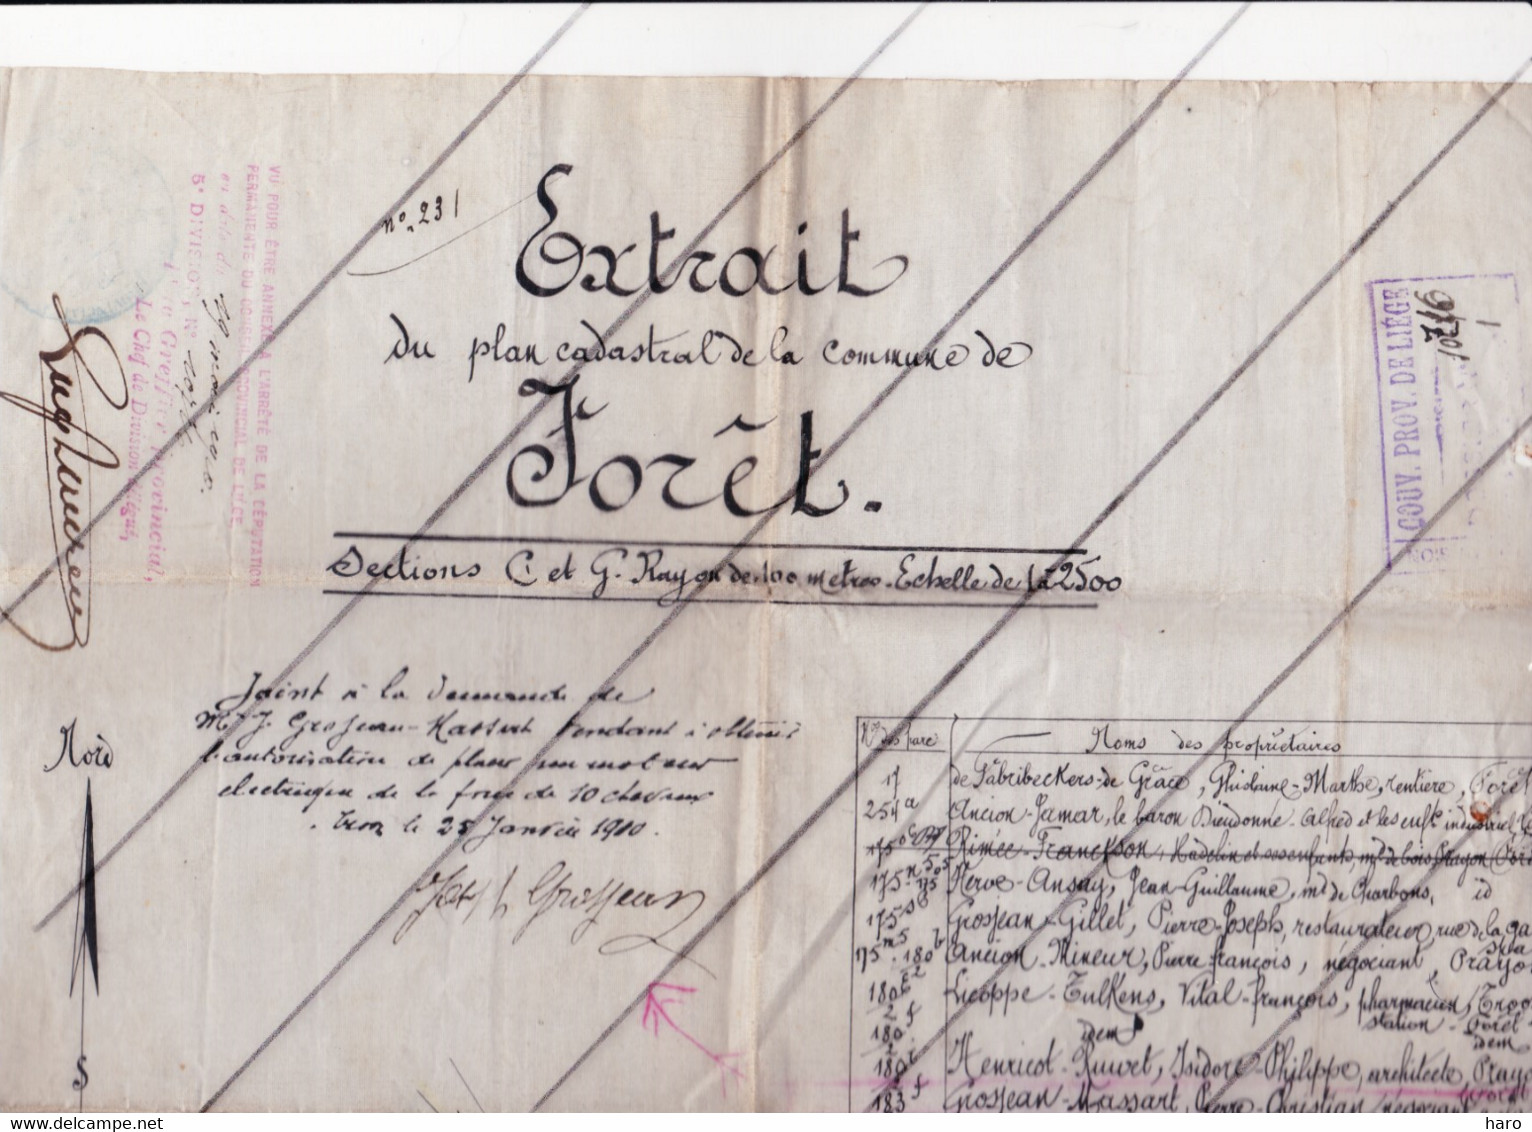 VU POUR ÊTRE ANNEXÉ A L'ARRÊTÉ DE LA DÉPUTATION
PERMANENTE DU CONSEIL PROVINCIAL DE LIÉGE
en date du 30 mai 1910.
5e DIVISION, No
Le Greffier Provincial,
Le Chef de Division délégué,
no. 231
Extrait
du plan cadastral de la commune de
Forêt.
Sections C et G. Rayon de 100 metres. Echelle de 1 à 2500
GOUV. PROV. DE LIÉGE
Joint à la demande de
Mr J. Grosjean-Massart tendant à obtenir
l'autorisation de placer un moteur
electrique de la force de 10 chevaux
Trooz le 25 Janvier 1910.
Jos. Grosjean
Nord
S
Nos des parc
Noms des propriétaires
17 de Fabribeckers-de Grâce, Ghislaine-Marthe, rentière, Forêt
254a Ancion-Jamar, le baron Dieudonné-Alfred et les enfts industriel
175 Rimée-Franckson, Hadelin et ses enfants, md de bois Prayon
175 Herve-Ansay, Jean-Guillaume, md de Charbons, id
175 Grosjean-Gillet, Pierre-Joseph, restaurateur, rue de la ga
175 180 Ancion-Mineur, Pierre-françois, négociant, Prayon
180 Licoppe-Tulkens, Vital-françois, pharmacien, Trooz
station-Forêt
180 idem idem
180 Henricot-Ruwet, Isidore-Philippe, architecte, Prayo
183f Grosjean-Massart, Pierre-Christian négociant
haro